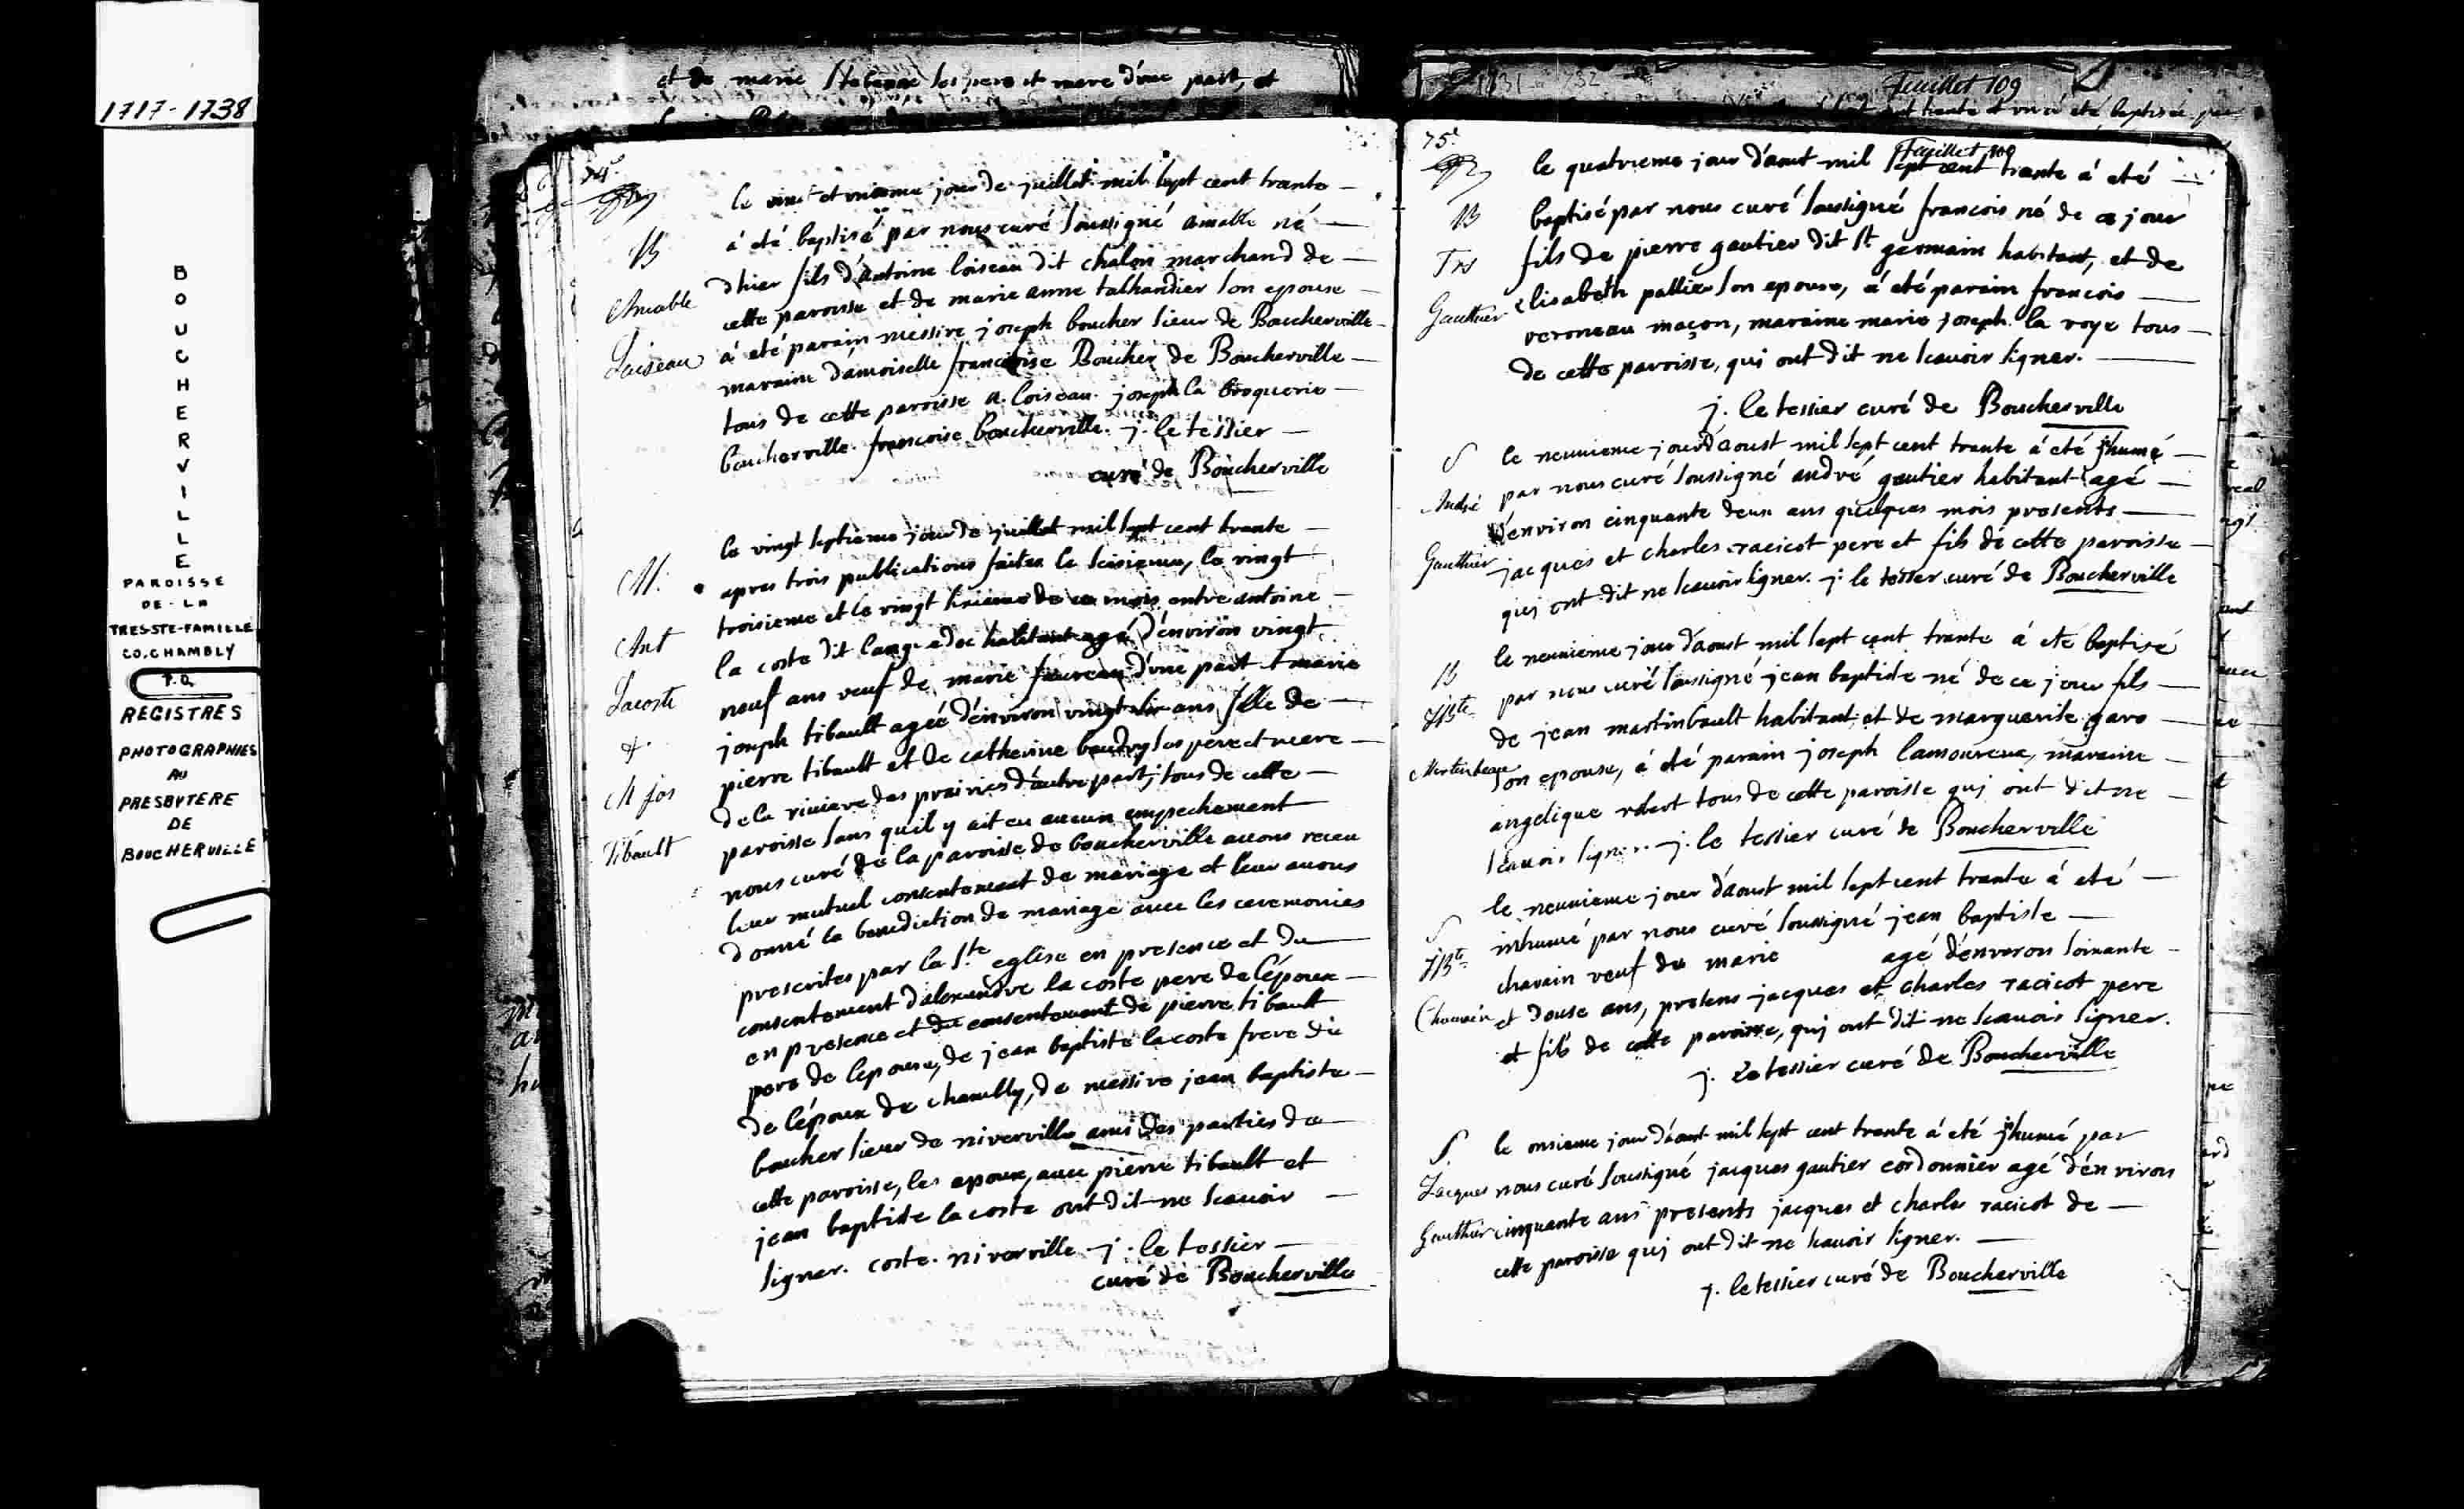 1717-1738
BOUCHERVILLE
PAROISSE
DE-LA
TRES-STE-FAMILLE
CO.CHAMBLY
P.Q.
REGISTRES
PHOTOGRAPHIES
AU
PRESBYTERE
DE
BOUCHERVILLE
et de marie les pere et mere d'une part, et
74e
le vint et unieme jour de juillet mil sept cent trante
B
à été baptisé par nous curé soussigné amable né
d'hier fils d'antoine loiseau dit chalon marchand de
Amable
cette paroisse et de marie anne talhandier son epouse
Loiseau
à été parain messire joseph boucher sieur de Boucherville
maraine damoiselle francoise Boucher de Boucherville
tous de cette paroisse a. loiseau. joseph la broquerie
boucherville. francoise boucherville. j. le tessier
curé de Boucherville
le vingt septieme jour de juillet mil sept cent trante
M.
apres trois publications faites le seisieme, le vingt
troisieme et le vingt de ce mois entre antoine
Ant
la coste dit languedoc habitant agé d'environ vingt
Lacoste
neuf ans veuf de marie d'une part et marie
joseph tibault agée d'environ vingt ans fille de
&
pierre tibault et de catherine baudry ses pere et mere
M jos
de la riviere des prairies d'autre part; tous de cette
Tibault
paroisse sans quil y ait eu aucun empechement
nous curé de la paroisse de boucherville auons receu
leur mutuel consentement de mariage et leur auons
donné la benediction de mariage auec les ceremonies
prescrites par la Ste eglise en presence et du
consentement d'alexandre la coste pere de l'époux
en presence et du consentement de pierre tibault
pere de lepouse, de jean baptiste la coste frere du
de l'époux de chambly, de messire jean baptiste
boucher sieur de niverville amis des parties de
cette paroisse, les epoux, auec pierre tibault et
jean baptiste la coste ont dit ne scauoir
signer. coste. niverville. j. le tessier
curé de Boucherville
Feuillet 109
75e
Feuillet 109
le quatrieme jour d'aout mil sept cent trante à eté
B
baptisé par nous curé soussigné francois né de ce jour
Frs
fils de pierre gautier dit St germain habitant, et de
Gauthier
elisabeth pallier son epouse, à été parain francois
veroneau maçon, maraine marie joseph la roye tous
de cette paroisse, qui ont dit ne scauoir signer.
j. le tessier curé de Boucherville
S
le neuuieme jour d'aoust mil sept cent trante à eté jnhumé
André
par nous curé soussigné andré gautier habitant agé
d'environ cinquante deux ans quelques mois presents
Gauthier
jacques et charles racicot pere et fils de cette paroisse
qui ont dit ne scauoir signer. j. le tessier curé de Boucherville
B
le neuuieme jour d'aoust mil sept cent trante à eté baptisé
JBte
par nous curé soussigné jean baptiste né de ce jour fils
de jean martinbault habitant et de marguerite garo
Martinbeau
son epouse, à été parain joseph lamoureux, maraine
angelique robert tous de cette paroisse qui ont dit ne
scauoir signer. j. le tessier curé de Boucherville
le neuuieme jour d'aoust mil sept cent trante à eté
S
inhumé par nous curé soussigné jean baptiste
JBte
chavain veuf de marie agé d'environ soixante
Chauvin
et douse ans, presens jacques et charles racicot pere
et fils de cette paroisse, qui ont dit ne scauoir signer.
j. Le tessier curé de Boucherville
S.
le onsieme jour d'aout mil sept cent trante à eté jnhumé par
Jacques
nous curé soussigné jacques gautier cordonnier agé d'environ
Gauthier
cinquante ans presents jacques et charles racicot de
cette paroisse qui ont dit ne scauoir signer.
j. le tessier curé de Boucherville